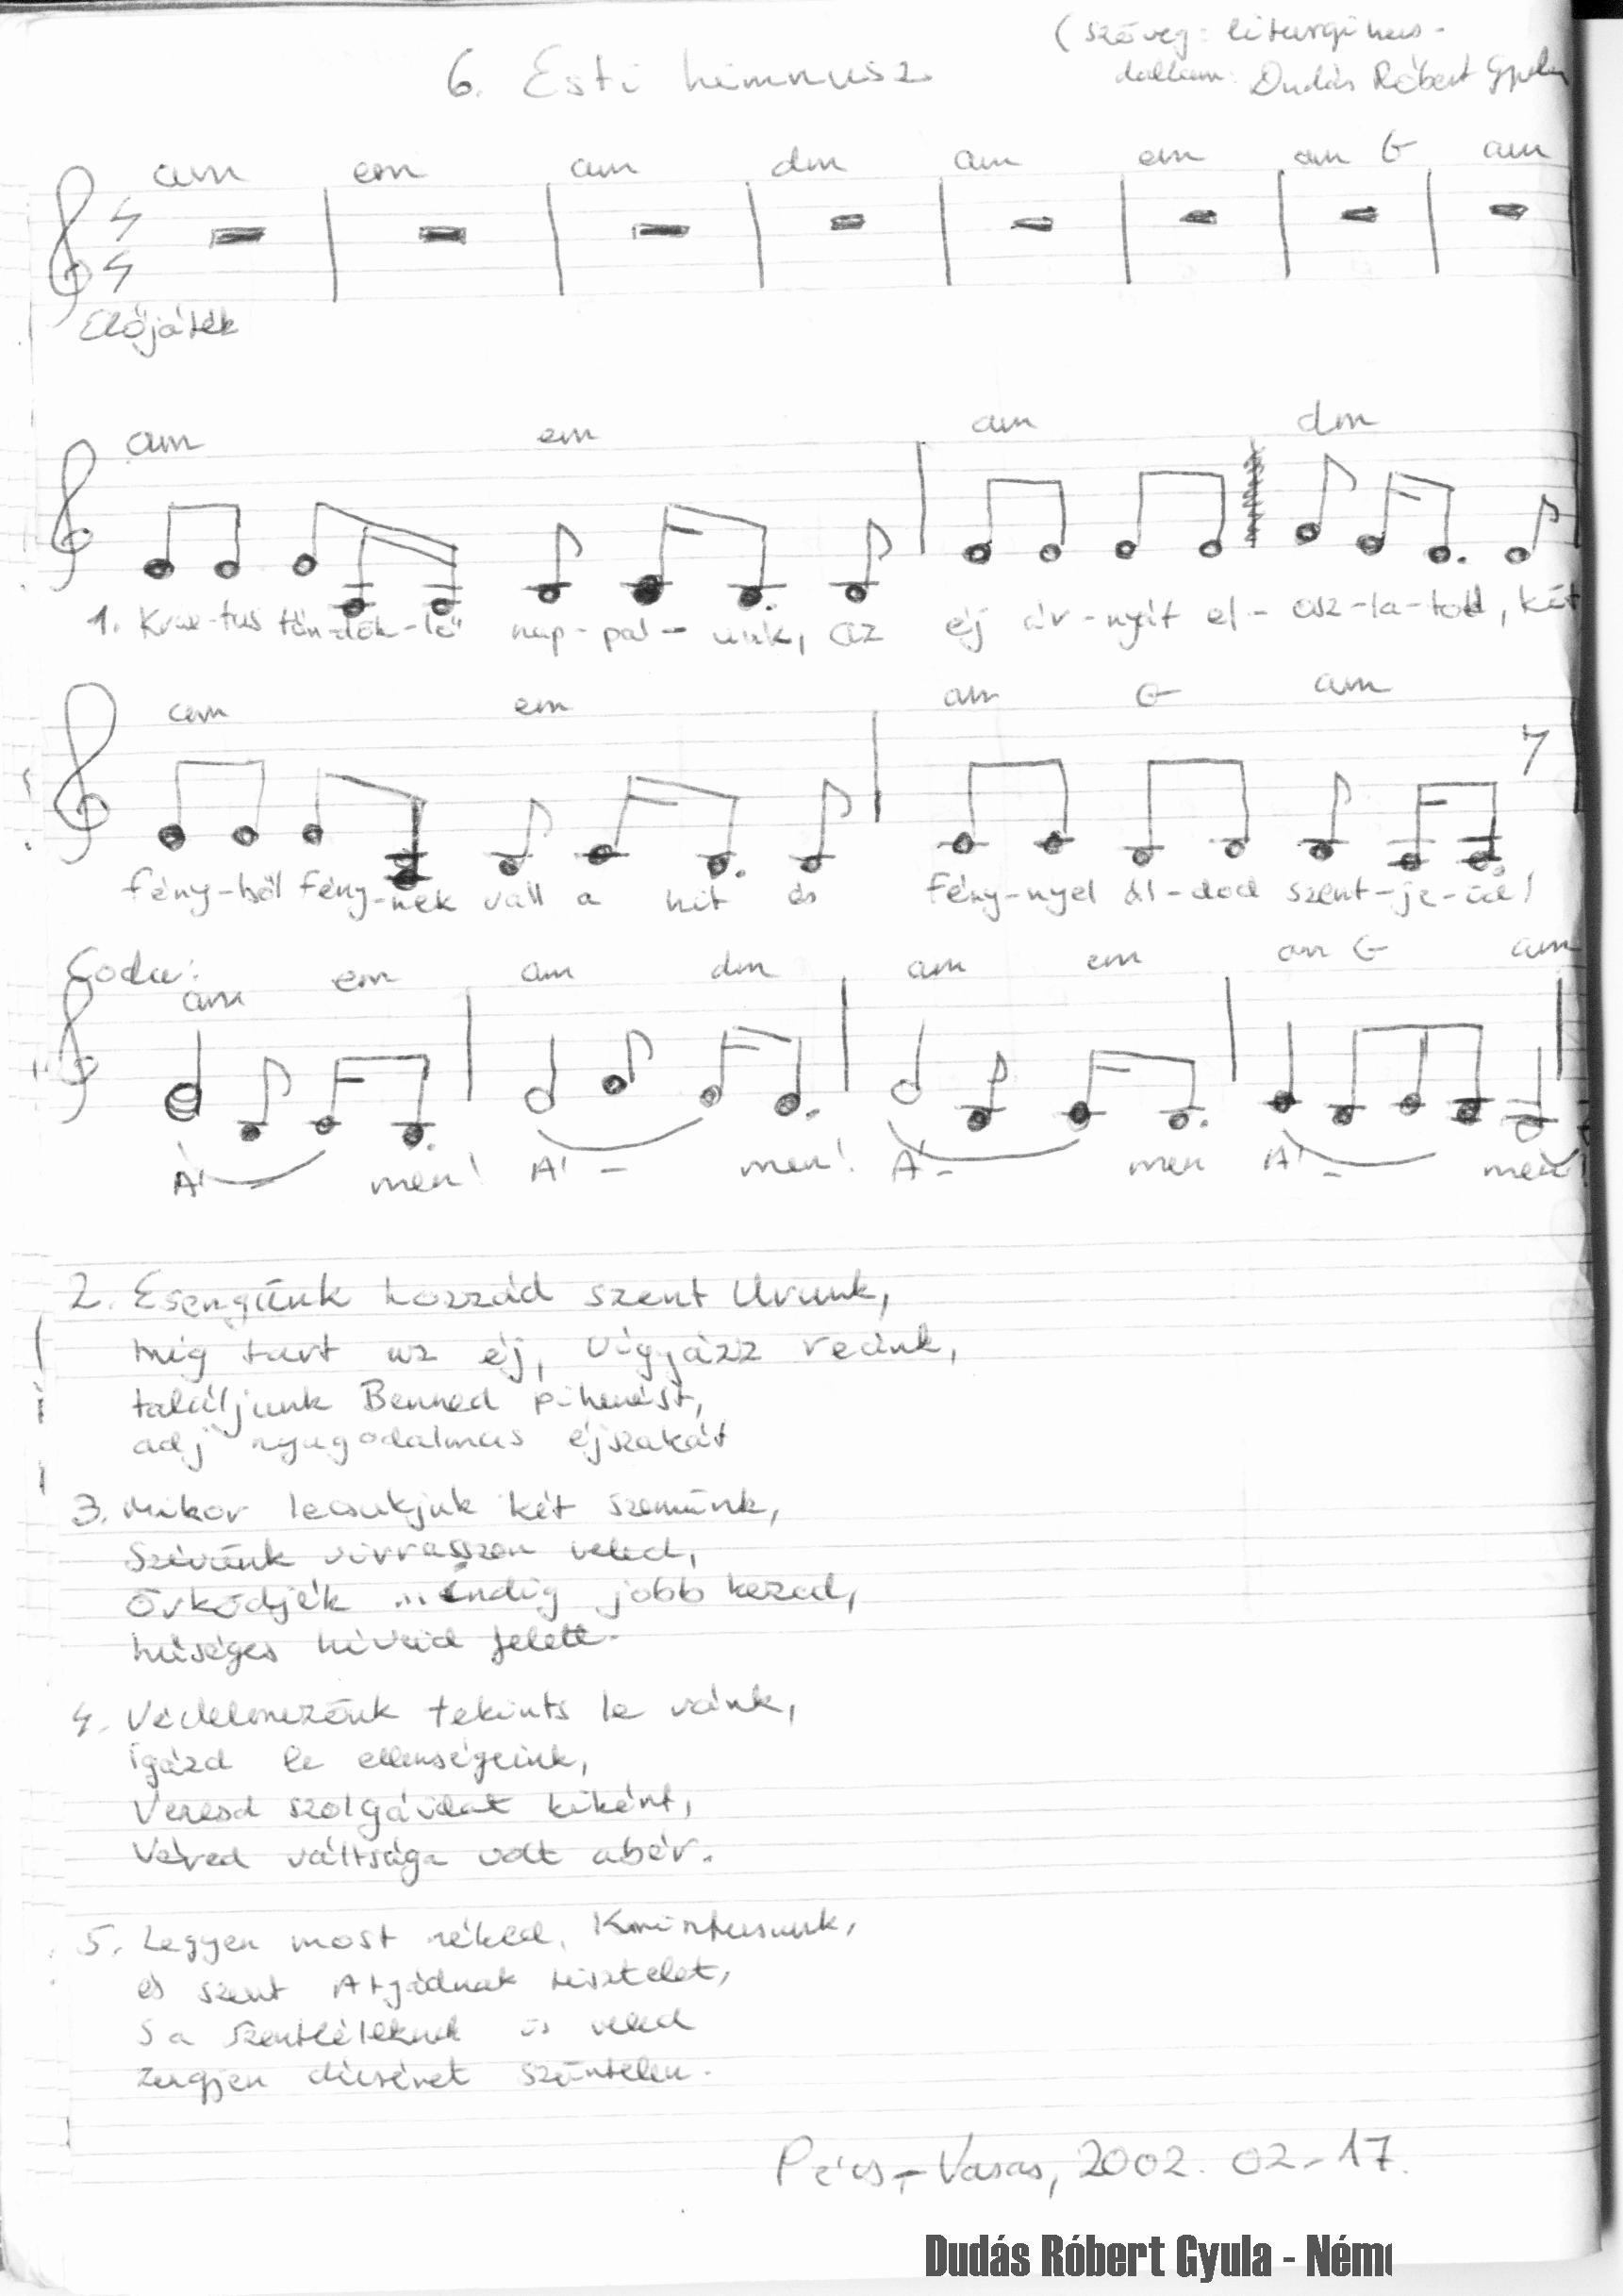 6. Esti himnusz
(szöveg: liturgikus -
dallam: Dudás Róbert Gyula
am em am dm am em am G am
4
4
Előjáték
am em am dm
1. Krisz-tus tün-dök-lő nap-pal- unk, az éj ár-nyát el- osz-la-tod, két
am em am G am
fény-ből fény-nek vall a hit és fény-nyel ál-dod szent-je-id!
Coda:
am em am dm am em am G am
Á- men! Á- men! Á- men Á- men!
2. Esengünk hozzád szent Urunk,
míg tart az éj, vigyázz reánk,
találjunk Benned pihenést,
adj nyugodalmas éjszakát
3. Mikor lecsukjuk két szemünk,
Szívünk virrasszon veled,
Őrködjék mindig jobb kezed,
hűséges híveid felett.
4. Védelmezőnk tekints le ránk,
igázd le ellenségeink,
Vezesd szolgáidat kikért,
Véred váltsága volt a bér.
5. Legyen most néked, Krisztusunk,
és szent Atyádnak tisztelet,
S a Szentléleknek is veled
zengjen dicséret szüntelen.
Pécs-Vasas, 2002. 02-17.
Dudás Róbert Gyula - Ném